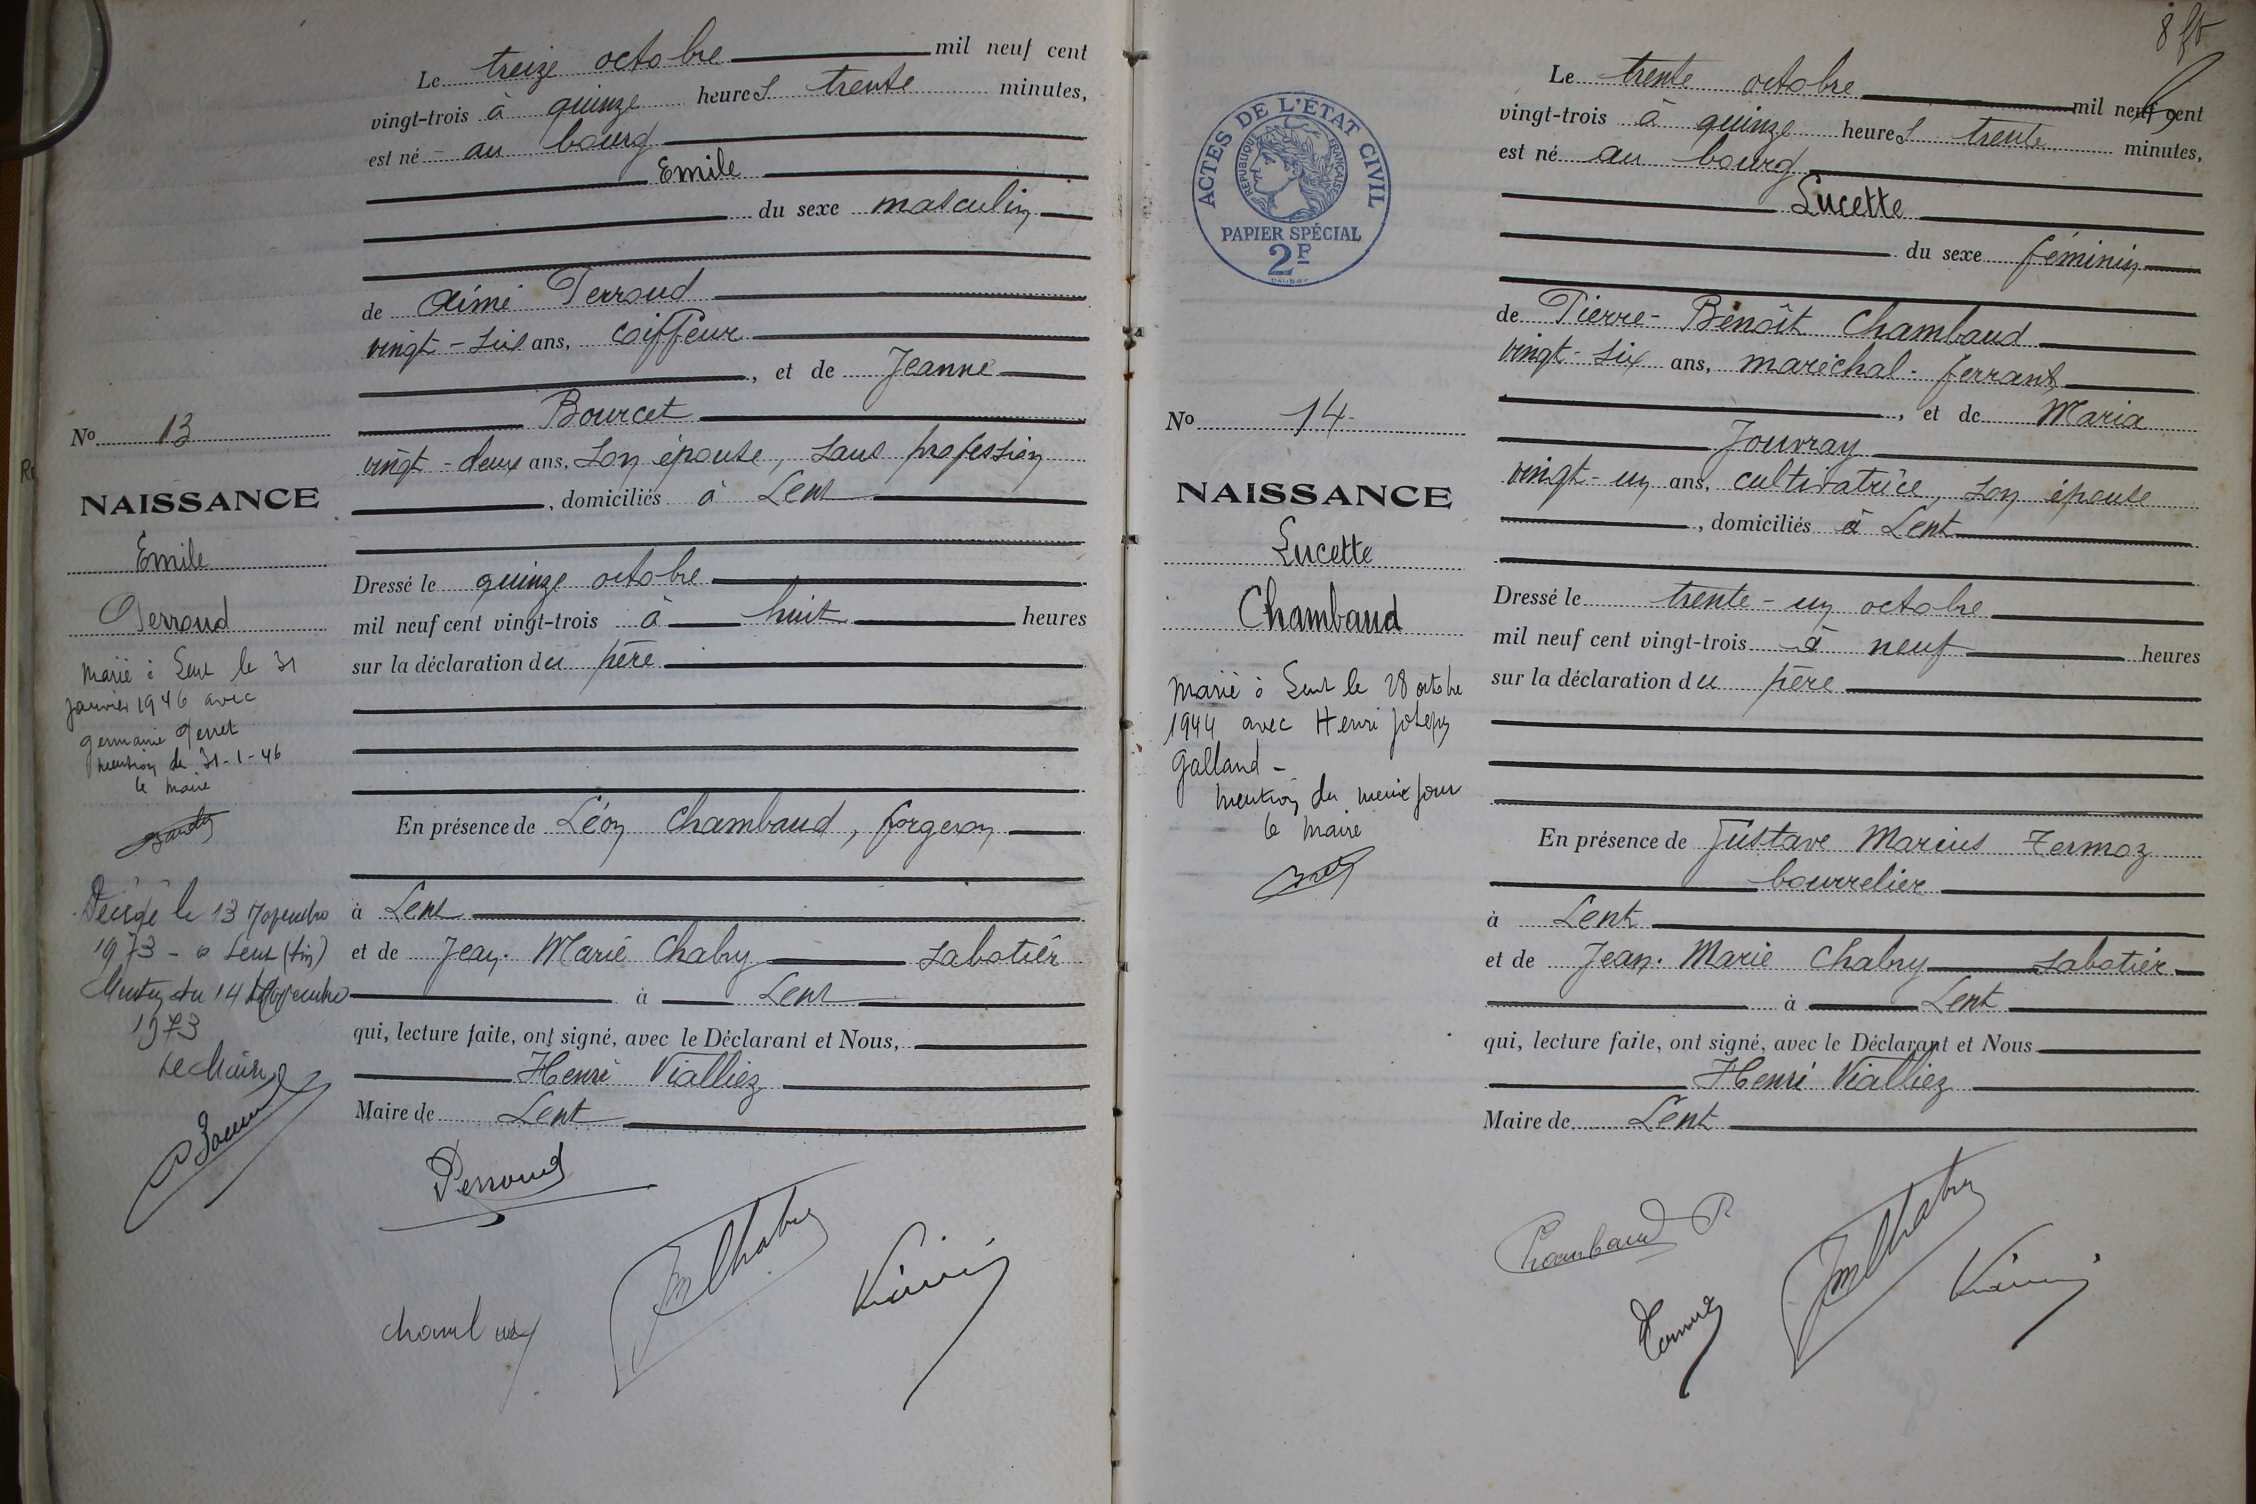 Le treize octobre mil neuf cent
vingt-trois à quinze heures trente minutes,
est né au bourg
Emile
du sexe masculin
de Aimé Perroud
vingt-six ans, coiffeur
, et de Jeanne
Bourcet
vingt-deux ans, son épouse, sans profession
, domiciliés à Lent
Dressé le quinze octobre
mil neuf cent vingt-trois à huit heures
sur la déclaration du père
En présence de Léon Chambaud, forgeron
à Lent
et de Jean-Marie Chabry sabotier
à Lent
qui, lecture faite, ont signé, avec le Déclarant et Nous,
Henri Vialliez
Maire de Lent
Perroud
JM Chabry
No 13
NAISSANCE
Emile
Perroud
Marié à Lent le 31
janvier 1946 avec
germaine Perret
mention du 31-1-46
le maire
Décédé le 13 novembre
1973 - à Lent (Ain)
du 14 novembre
1973
Le Maire
8
ACTES DE L'ÉTAT CIVIL
RÉPUBLIQUE FRANÇAISE
PAPIER SPÉCIAL
2F
No 14
NAISSANCE
Lucette
Chambaud
Marié à Lent le 28 octobre
1944 avec Henri Joseph
Galland -
mention du même jour
le maire
Le trente octobre mil neuf cent
vingt-trois à quinze heures trente minutes,
est né au bourg
Lucette
du sexe féminin
de Pierre-Benoît Chambaud
vingt-six ans, maréchal-ferrant
, et de Maria
Jouvray
vingt-un ans, cultivatrice, son épouse
, domiciliés à Lent
Dressé le trente-un octobre
mil neuf cent vingt-trois à neuf heures
sur la déclaration du père
En présence de Gustave Marius Termoz
bourrelier
à Lent
et de Jean-Marie Chabry sabotier
à Lent
qui, lecture faite, ont signé, avec le Déclarant et Nous
Henri Vialliez
Maire de Lent
Chambaud P
JM Chabry